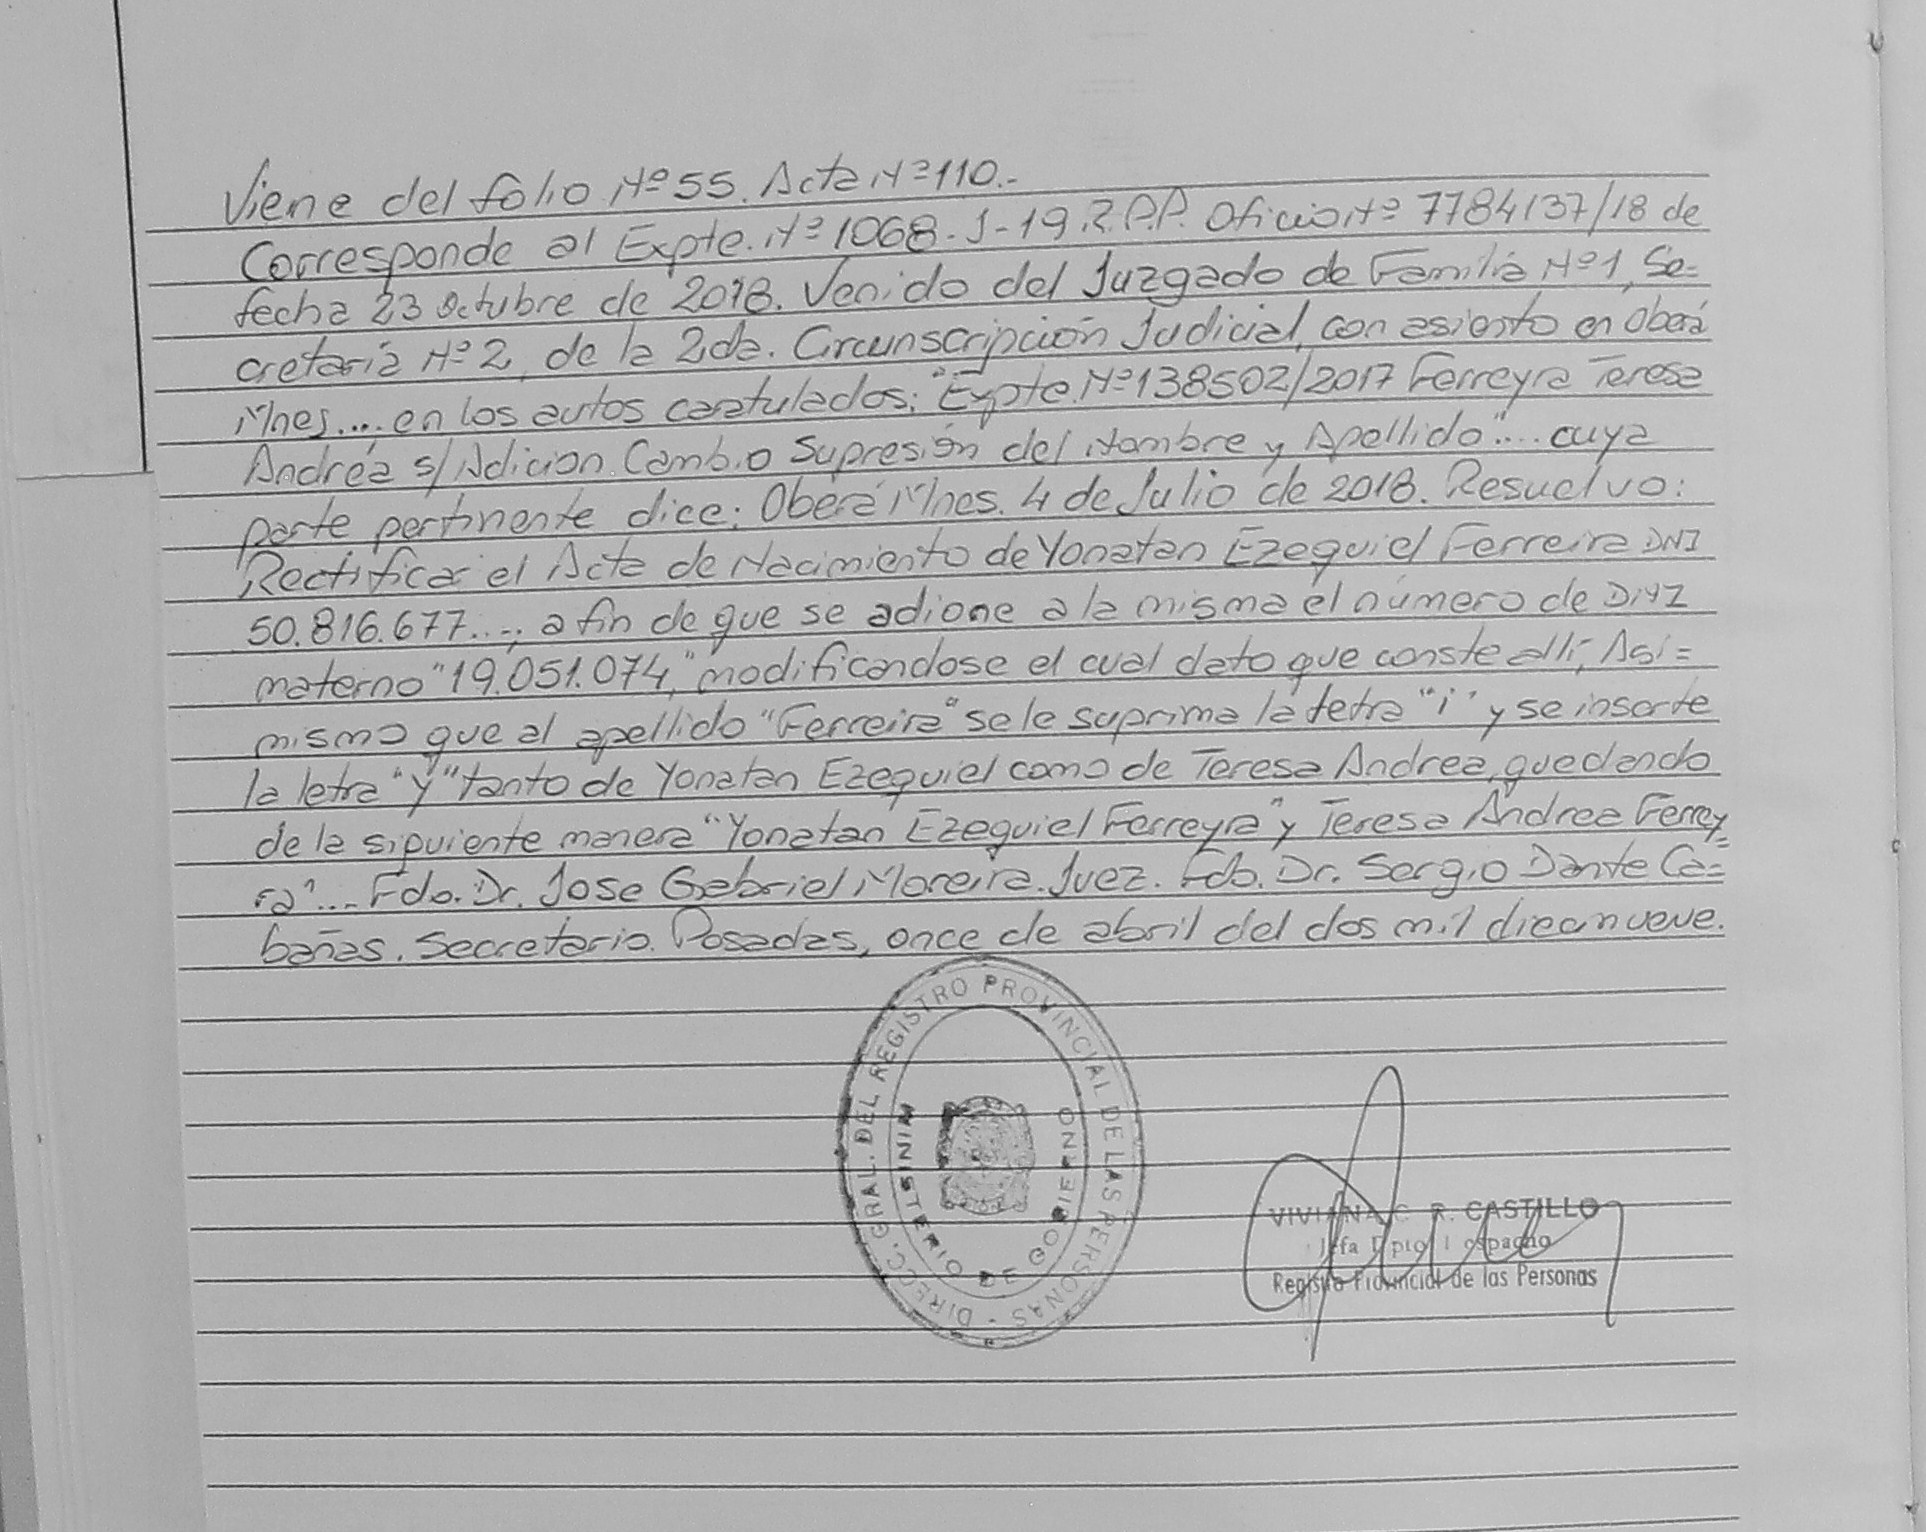 Viene del folio Nº 55. Acta Nº 110.-
Corresponde al Expte. Nº 1068-J-19.R.P.P. Oficio Nº 7784137/18 de
fecha 23 Octubre de 2018. Venido del Juzgado de Familia Nº1, Se=
cretaria Nº 2, de la 2da. Circunscripción Judicial, con asiento en Oberá
Mnes.... en los autos caratulados: "Expte. Nº 138502/2017 Ferreyra Teresa
Andréa s/Adicion Cambio Supresión del Nombre y Apellido".... cuya
parte pertinente dice: Oberá Mnes. 4 de Julio de 2018. Resuelvo:
Rectificar el Acta de Nacimiento de Yonatan Ezequiel Ferreira DNI
50.816.677...., a fin de que se adione a la misma el número de DNI
materno "19.051.074," modificandose el cual dato que conste allí, Asi=
mismo que al apellido "Ferreira" se le suprima la letra "i" y se inserte
la letra "Y" tanto de Yonatan Ezequiel como de Teresa Andrea, quedando
de la siguiente manera "Yonatan Ezequiel Ferreyra" y Teresa Andrea Ferrey=
ra".... Fdo. Dr. Jose Gabriel Moreira. Juez. Fdo. Dr. Sergio Dante Ca=
bañas. Secretario. Posadas, once de abril del dos mil diecinueve.
DIRECC. GRAL. DEL REGISTRO PROVINCIAL DE LAS PERSONAS -
MINISTERIO DE GOBIERNO
VIVIANA C. R. CASTILLO
Jefa Dpto.
Registro Provincial de las Personas